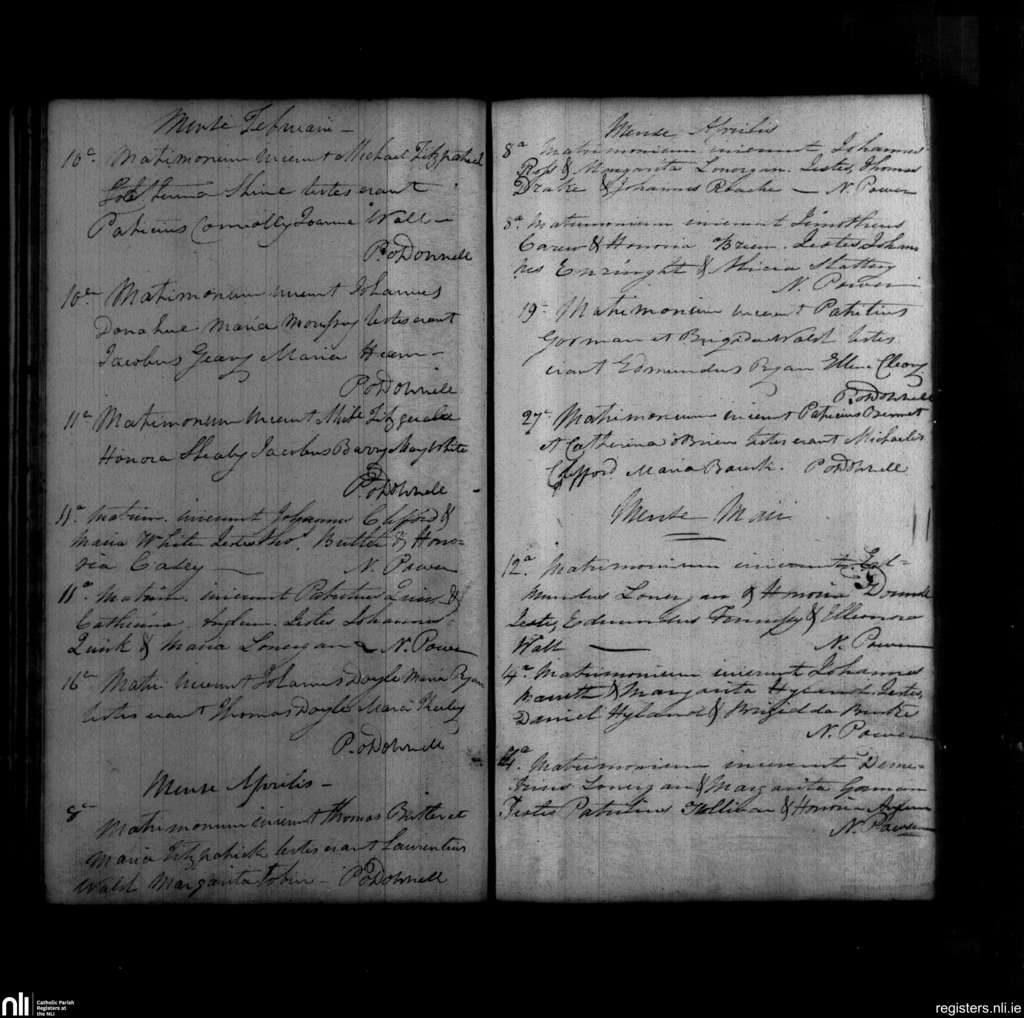 Mense Februarii -
10a Matrimonium inierunt Michael Fitzpatrick
Shine testes erant
Patricius Connolly Joanna Wall -
P. oDonnell
10a Matrimonium inierunt Johannes
Donahue Maria testes erant
Jacobus Geary Maria Hearn -
P. oDonnell
11a Matrimonium inierunt Mich Fitzgerald
Honora Shealy Jacobus Barry Mary White
P. oDonnell
11a Matrim. inierunt Johannes Clifford &
Maria White Testes Tho. Butler & Hono-
ria Casey — N. Power
11a Matrim. inierunt Patritius Quirk &
Catherina Testes Johannes
Quirk & Maria Lonergan - N. Power
16a Matri inierunt Johannes Doyle Maria Ryan
testes erant Thomas Doyle Maria
P. oDonnell
Mense Aprilis -
8a Matrimonium inierunt Thomas Butler et
Maria Fitzpatrick testes erant Laurentius
Wald Margarita Tobin - P. oDonnell
Mense Aprilis
8a Matrimonium inierunt Johannes
Ross & Margarita Lonergan. Testes, Thomas
Drake & Johannes Roache — N. Power
8a. Matrimonium inierunt Timotheus
Carew & Honoria Breen. Testes Johan
nes Enright & Alicia Slattery
N. Power
19a Matrimonium inierunt Patritius
Gorman et Brigida Wald testes
erant Edmundus Ryan Ellen Cleary
P. oDonnell
27a Matrimonium inierunt Patricius Bennet
et Catherina oBrien testes erant Michael
Clifford Maria Bourk. P oDonnell
Mense Maii
12a. Matrimonium inierunt Ed-
mundus Lonergan & Honoria
Testes, Edmundus Fennessy & Elleonora
Wall — N. Power
4a Matrimonium inierunt Johannes
Barrett & Margarita Hyland. Testes,
Daniel Hyland & Brigidda Burke
N. Power
4a. Matrimonium inierunt Deme-
trius Lonergan & Margarita Gorman
Testes Patritius Sullivan & Honoria
N. Power
nli
Catholic Parish
Registers at
the NLI
registers.nli.ie